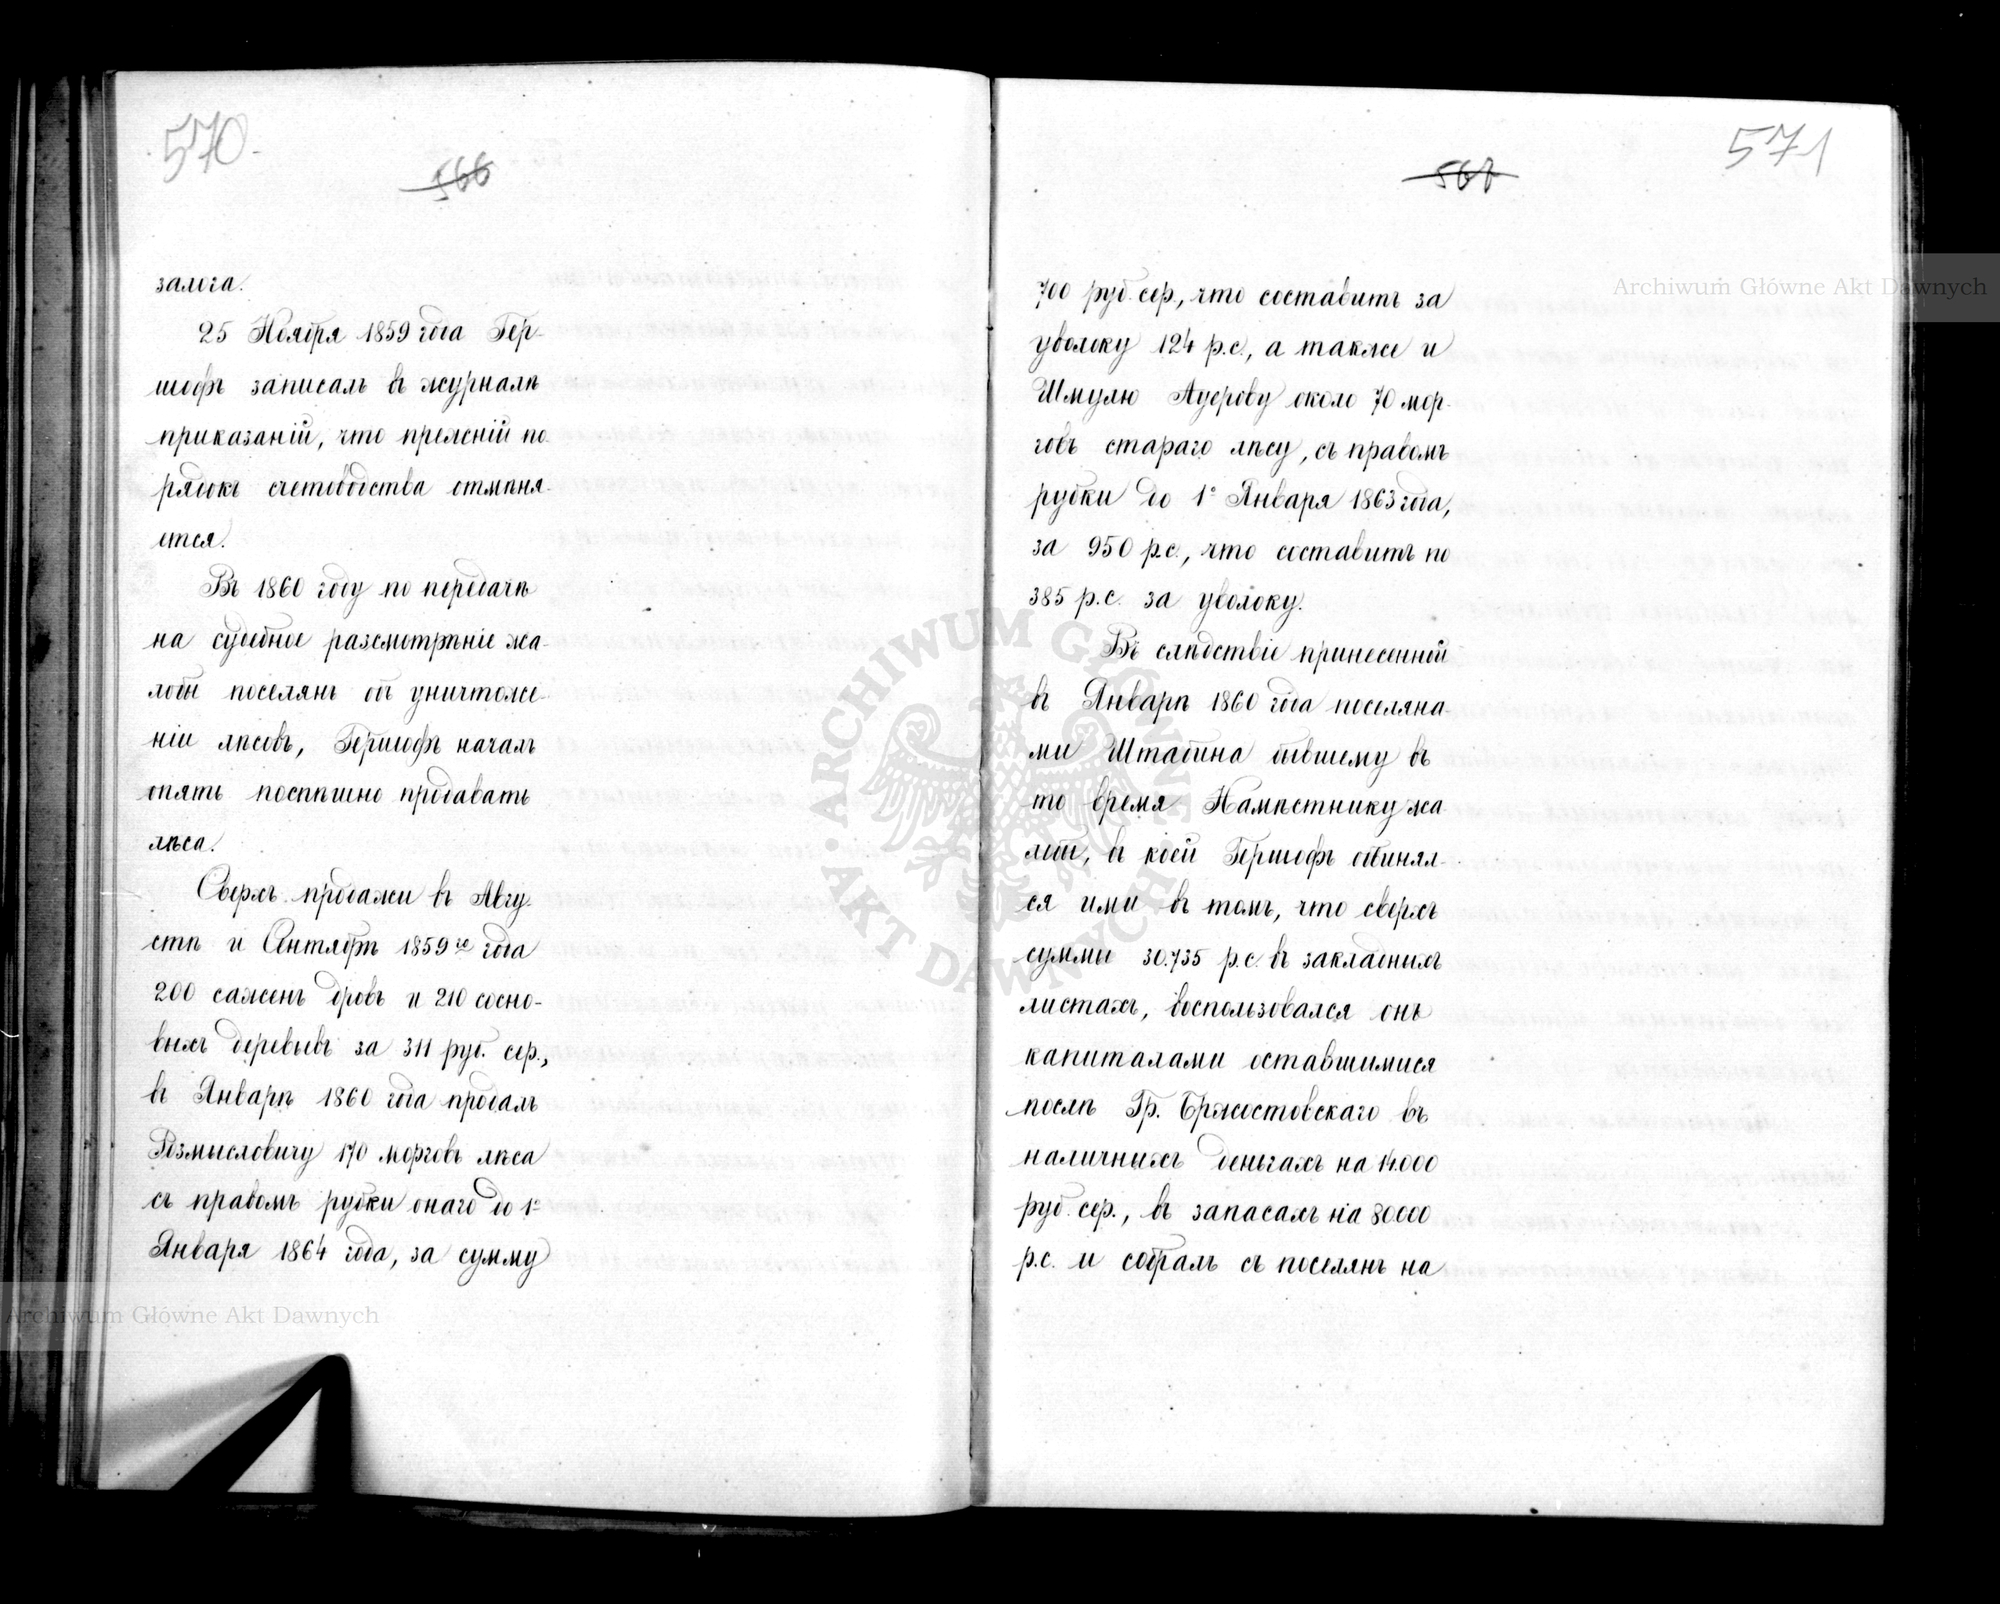 570
566
залога.
25 Ноября 1859 года Гер-
шофъ записалъ въ журналѣ
приказаній, что прежній по-
рядокъ счетоводства отмѣня-
ется.
Въ 1860 году по передачѣ
на судебное разсмотрѣніе жа-
лобы поселянъ объ уничтоже-
ніи лѣсовъ, Гершофъ началъ
опять поспѣшно продавать
лѣса.
Сверхъ продажи въ Авгу-
стѣ и Сентябрѣ 1859го года
200 саженъ дровъ и 210 сосно-
выхъ деревьевъ за 311 руб. сер.,
въ Январѣ 1860 года продалъ
Розмысловичу 170 морговъ лѣса
съ правомъ рубки онаго до 1о
Января 1864 года, за сумму
Archiwum Główne Akt Dawnych
571
567
Archiwum Główne Akt Dawnych
700 руб. сер., что составитъ за
уволоку 124 р.с., а также и
Шмулю Ауерову около 70 мор-
говъ стараго лѣсу, съ правомъ
рубки до 1о Января 1863 года,
за 950 р.с., что составитъ по
385 р.с. за уволоку.
Въ слѣдствіе принесенной
въ Январѣ 1860 года поселяна-
ми Штабина бывшему въ
то время Намѣстнику жа-
лобы, въ коей Гершофъ обвинял-
ся ими въ томъ, что сверхъ
суммы 30.735 р.с. въ закладныхъ
листахъ, воспользовался онъ
капиталами оставшимися
послѣ Гр. Бржостовскаго въ
наличныхъ деньгахъ на 14.000
руб. сер., въ запасахъ на 80000
р.с. и собралъ съ поселянъ на
ARCHIWUM GŁÓWNE AKT DAWNYCH